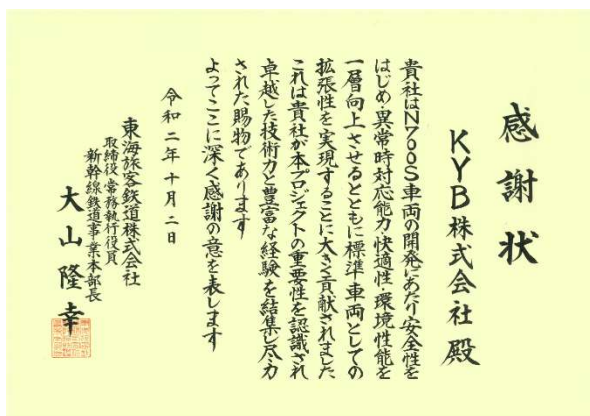 感謝状
KYB株式会社 殿
貴社はN700S車両の開発にあたり安全性を
はじめ・異常時対応能力・快適性・環境性能を
一層向上させるとともに標準車両としての
拡張性を実現することに大きく貢献されました
これは貴社が本プロジェクトの重要性を認識され
卓越した技術力と豊富な経験を結集し尽力
された賜物であります
よってここに深く感謝の意を表します
令和二年十月二日
東海旅客鉄道株式会社
取締役常務執行役員
新幹線鉄道事業本部長
大山隆幸